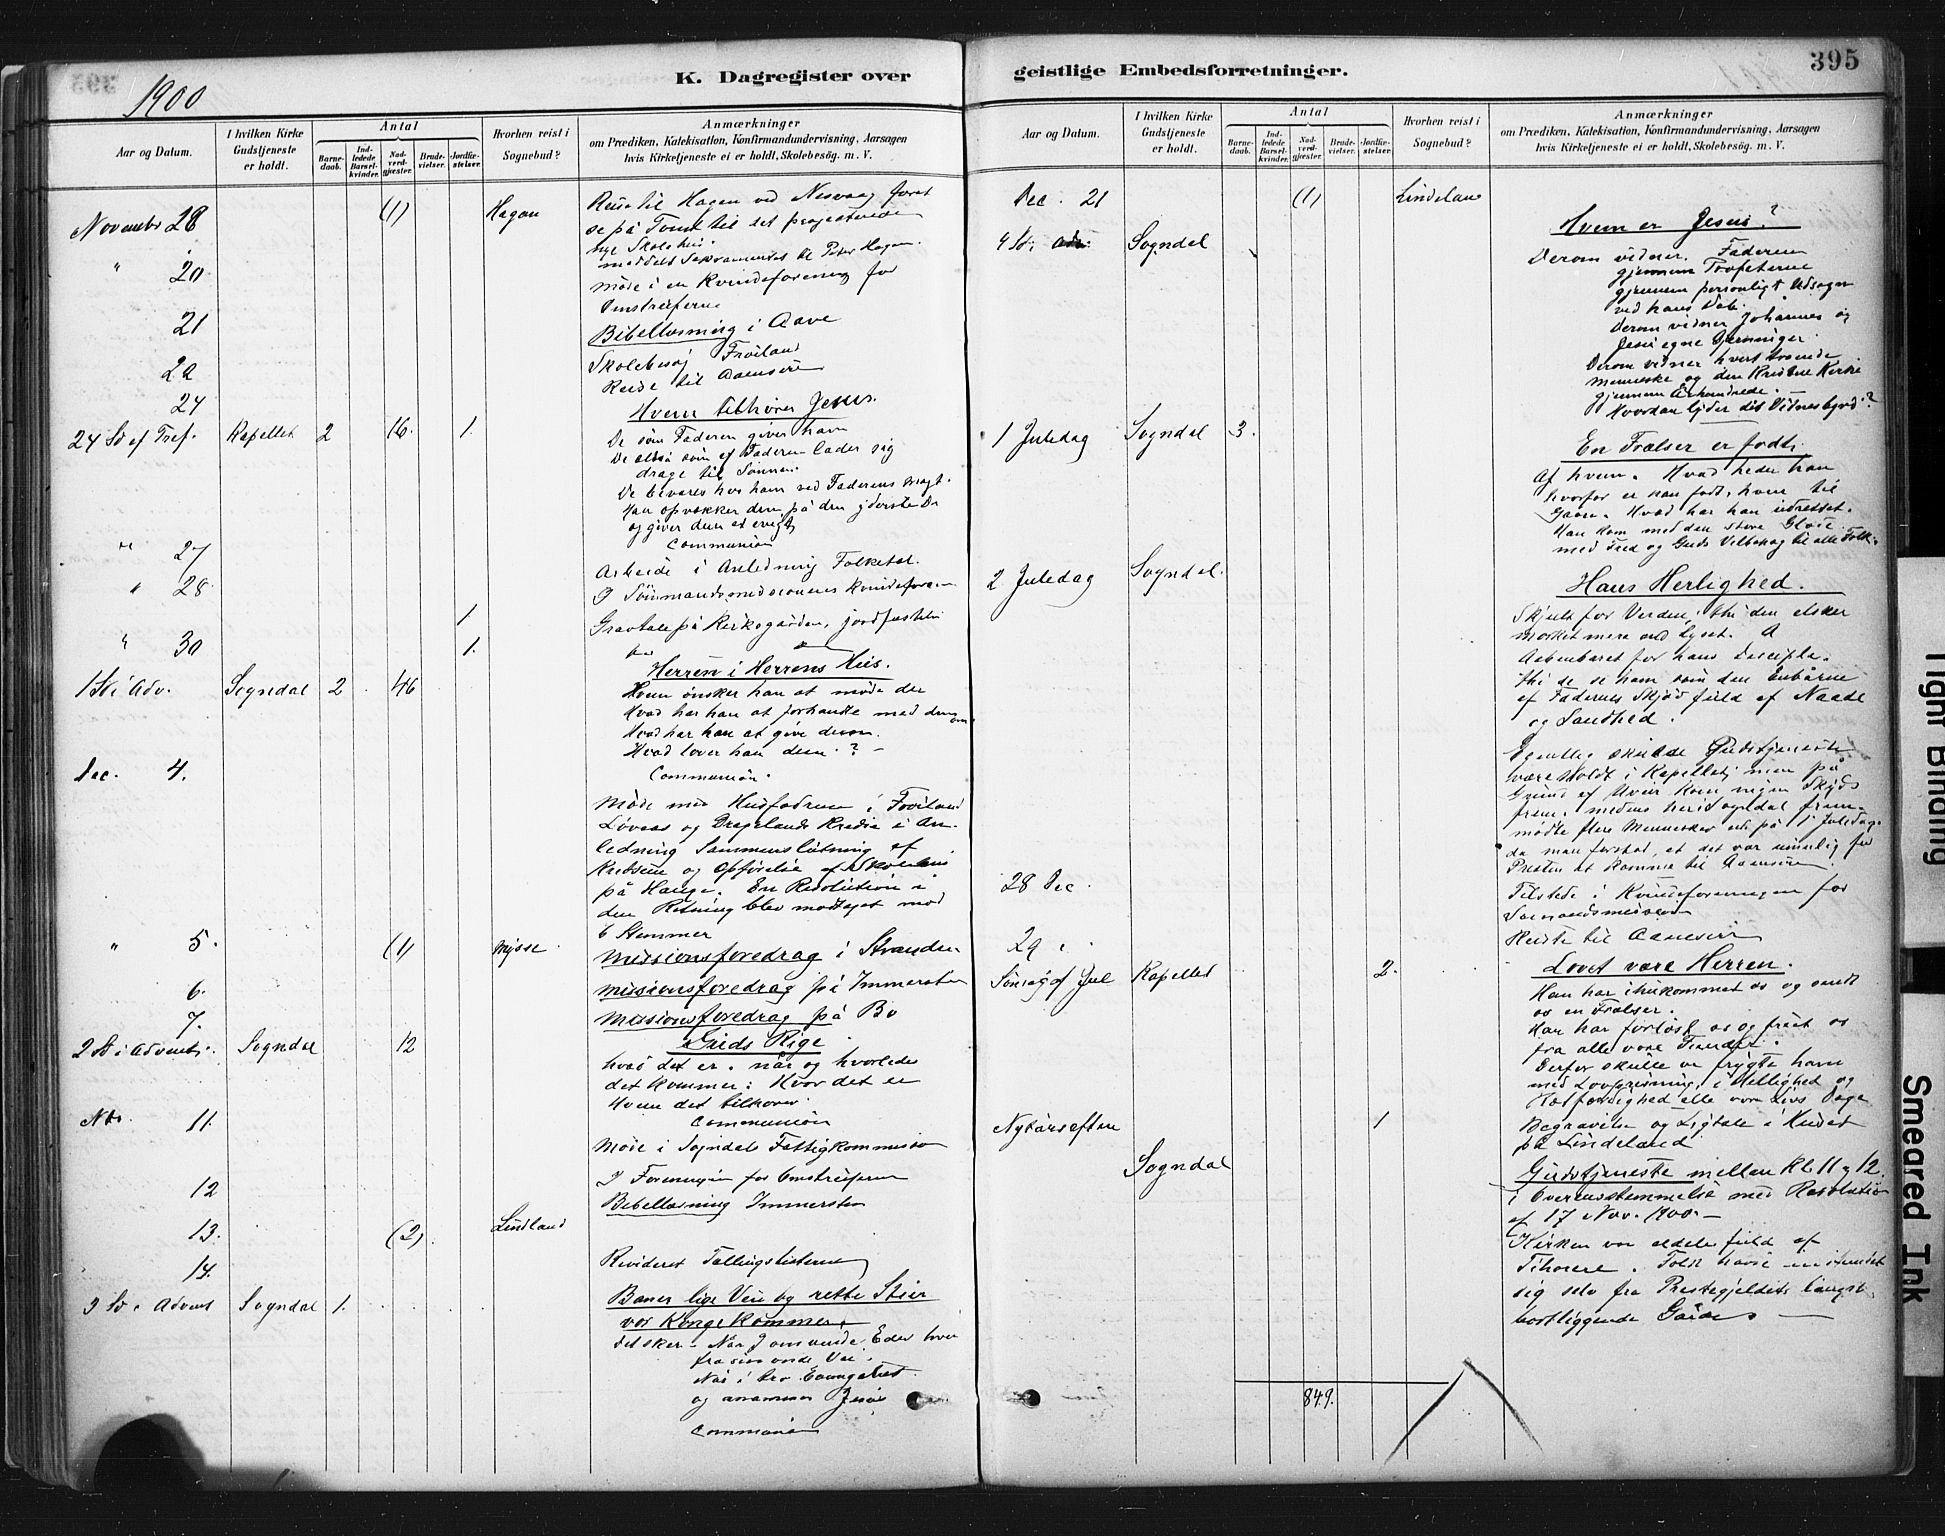 395
1900
K. Dagregister over
geistlige Embedsforretninger.
Aar og Datum.
I hvilken Kirke Gudstjeneste er holdt.
Antal
Barnedaab.
Indledede Barselkvinder.
Nadverdgjæster.
Brudevielser.
Jordfæstelser.
Hvorhen reist i Sognebud?
Anmærkninger
om Prædiken, Katekisation, Konfirmandundervisning, Aarsagen
hvis Kirketjeneste ei er holdt, Skolebesög. m. V.
November 28 (1) Hagan Reise til Hagen ved Nesvaag forat
se på Tomt til det projecterede
nye Skolehus.
meddelt Sakramentet til Peter Hagen.
" 20 møde i en Kvindeforening for
Omstreiferne
21 Bibellæsning i Aave
22 Skolebesøg Frøiland
24 Reise til Aanesire
Hvem tilhører Jesus.
24 Sd ef Tref. Kapellet 2 16. 1.
De som Faderen giver ham
De altså som af Faderen lader sig
drage til Sønnen.
De bevares hos ham ved Faderens Magt.
Han opvækker dem på den yderste Da
og giver dem et evigt
Communion
" 27 Arbeide i Anledning Folketal.
" 28 I Sømandsmissionens Kvindeforen
1 Gravtale på Kirkegaarden, jordfæstelse
" 30 1.
Herren i Herrens Hus.
1 Sd i Adv. Sogndal 2 46
Hvem ønsker han at møde der
Hvad har han at forhandle med dem om
Hvad har han at give dem.
Hvad lover han dem. ? –
Communion.
Dec. 4.
Møde med Husfædrene i Frøiland
Løvaas og Drageland Kredse i An-
ledning Sammenslutning af
Kredsene og Opførelse af Skolehus
på Hauge. En Resolution i
den Retning blev modtaget med
6 Stemmer
" 5. (1) Mysse. Missionsforedrag i Stranden
6. Missionsforedrag på Immersten
7. Missionsforedrag på Bø
Guds Rige
2 Sd i Advent. Sogndal 12
hvad det er. når og hvorledes
det kommer: Hvor det er
Hvem det tilhører.
Communion
11. Møde i Sogndals Fattigkommission
12 I Foreningen for Omstreiferne
Bibellæsning Immersten
13. (2) Lindland
14. Revideret Tællingslisterne
3 Sd i Advent Sogndal 1.
Baner lige Veie og rette Stier
vor Konge kommer.
Det sker – Når I omvende Eder hver
fra sin onde Vei.
Når i tro Evangeliet
og annammer Jesus
Communion
Aar og Datum.
I hvilken Kirke Gudstjeneste er holdt.
Antal
Barnedaab.
Indledede Barselkvinder.
Nadverdgjæster.
Brudevielser.
Jordfæstelser.
Hvorhen reist i Sognebud?
Anmærkninger
om Prædiken, Katekisation, Konfirmandundervisning, Aarsagen
hvis Kirketjeneste ei er holdt, Skolebesög. m. V.
Dec. 21 (1) Lindeland
Hvem er Jesus?
4 Sd i Adv. Sogndal
Derom vidner. Faderen
gjennem Profeterne
gjennem personligt Udsagn
ved hans Dåb.
Derom vidner Johannes og
Jesu egne Gjerninger.
Derom vidner hvert troende
Menneske og den Kristne Kirke
gjennem Århundrede.
Hvordan lyder dit Vidnesbyrd?
1 Juledag Sogndal 3.
En Frelser er født.
Af hvem. Hvad heder han
hvorfor er han født, hvem til
Gavn. Hvad har han udrettet.
Han kom med den store Glæde.
med Fred og Guds Velbehag til alle Folk.
2 Juledag Sogndal.
Hans Herlighed.
Skjult for Verden, thi den elsker
Mørket mere end Lyset.
Aabenbaret for hans Disciple.
thi de se ham som den Enbårne
af Faderens Skjød fuld af Naade
og Sandhed.
Egentlig skulde Gudstjeneste
være holdt i Kapellet, men på
Grund af Uveir kom ingen Skyds
frem, medens her i Sogndal frem-
mødte flere Mennesker end på 1 Juledag.
da man forstod, at det var umulig for
Presten at komme til Aanesire
28 Dec. Tilstede i Kvindeforeningen for
Sømandsmission
29 " Reiste til Aanesire
Lovet være Herren.
Søndag ef Jul Kapellet 2.
Han har ihukommet os og sendt
os en Frelser.
Han har forløst os og friet os
fra alle vore Fiender.
Derfor skulle vi frygte ham
med Lovprisning, i Hellighed og
Retfærdighed alle vore Livs Dage
Nytårsaften 1 Begravelse og Ligtale i Huset
på Lindeland
Sogndal Gudstjeneste mellem Kl. 11 og 12
i Overensstemmelse med Resolution
af 17 Nov. 1900. –
Kirken var aldeles fuld af
Tilhørere. Folk havde indfundet
sig selv fra Prestegjeldets længst
bortliggende Gårde
849.
Tight Binding
Smeared Ink